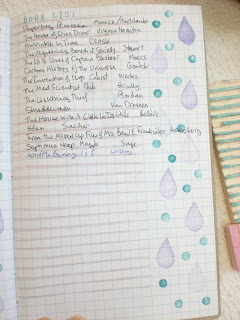 BOOK LIST
Paperboy Princess Munsch/Martchenko
The House of Dies Drear Virginia Hamilton
A Wrinkle in Time L'engle
The Mysterious Benedict Society Stewart
The 13 ½ Lives of Captain Bluebear Moers
Cartoon History of the Universe Gonick
The Invention of Hugo Cabret Selznick
The Mad Scientist Club Brinley
The Lightning Thief Riordan
Shredderman Van Draanen
The House With A Clock In Its Walls Bellairs
Holes Sachar
From the Mixed Up Files of Mrs Basil E Frankweiler Konigsburg
Septimus Heap, Magyk Sage